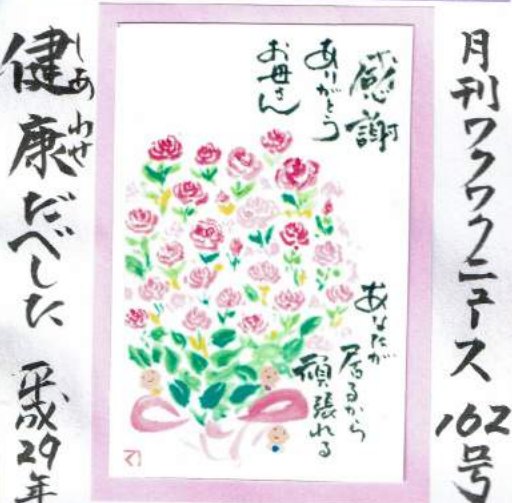 月刊ワクワクニュース 162号
感謝
ありがとう
お母さん
あなたが
居るから
頑張れる
しあわせ
健康だべした 平成29年